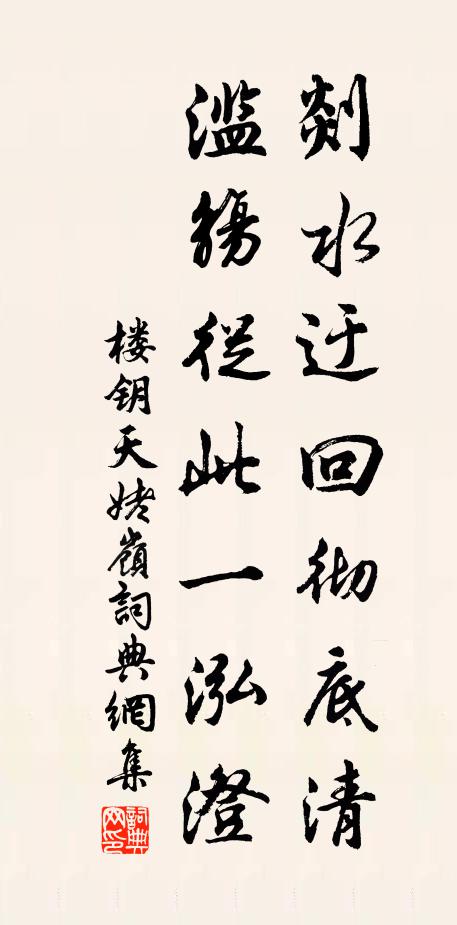 剡水迂回彻底清
滥觞從此一泓澄
楼钥天姥嶺詞典網集
詞典网印